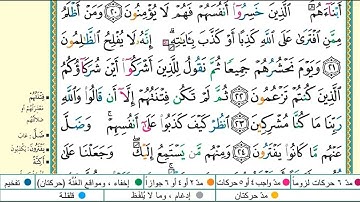 أَبْنَآءَهُمُ ۘ ٱلَّذِينَ خَسِرُوٓا۟ أَنفُسَهُمْ فَهُمْ لَا يُؤْمِنُونَ ٢٠ وَمَنْ أَظْلَمُ
مِمَّنِ ٱفْتَرَىٰ عَلَى ٱللَّهِ كَذِبًا أَوْ كَذَّبَ بِـَٔايَـٰتِهِۦٓ ۗ إِنَّهُۥ لَا يُفْلِحُ ٱلظَّـٰلِمُونَ
٢١ وَيَوْمَ نَحْشُرُهُمْ جَمِيعًا ثُمَّ نَقُولُ لِلَّذِينَ أَشْرَكُوٓا۟ أَيْنَ شُرَكَآؤُكُمُ
ٱلَّذِينَ كُنتُمْ تَزْعُمُونَ ٢٢ ثُمَّ لَمْ تَكُن فِتْنَتُهُمْ إِلَّآ أَن قَالُوا۟ وَٱللَّهِ
رَبِّنَا مَا كُنَّا مُشْرِكِينَ ٢٣ ٱنظُرْ كَيْفَ كَذَبُوا۟ عَلَىٰٓ أَنفُسِهِمْ ۚ وَضَلَّ
عَنْهُم مَّا كَانُوا۟ يَفْتَرُونَ ٢٤ وَمِنْهُم مَّن يَسْتَمِعُ إِلَيْكَ ۖ وَجَعَلْنَا عَلَىٰ
فِتْنَتُهُمْ
ضَلَّ: غاب
يَفْتَرُونَ
أَكِنَّةً
مدّ ٦ حركات لزوماً مدّ ٢ أو ٤ أو ٦ جوازاً إخفاء، ومواقع الغُنَّة (حركتان) تفخيم
مدّ واجب ٤ أو ٥ حركات مدّ حركتان إدغام، وما لا يُلفَظ قلقلة